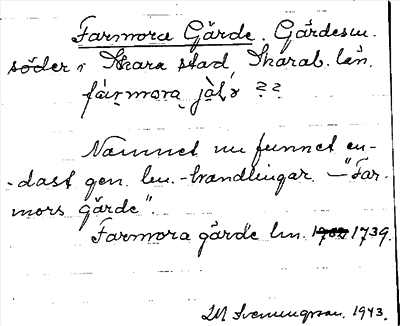 Farmora Gärde. Gärdesm.
söder i Skara stad Skarab. län.
färmora jälö ??
Namnet nu funnet en-
-dast gen. lm.-handlingar. — "Far-
mors gärde".
Farmora gärde lm. 1739.
LM Svenungsson. 1943.